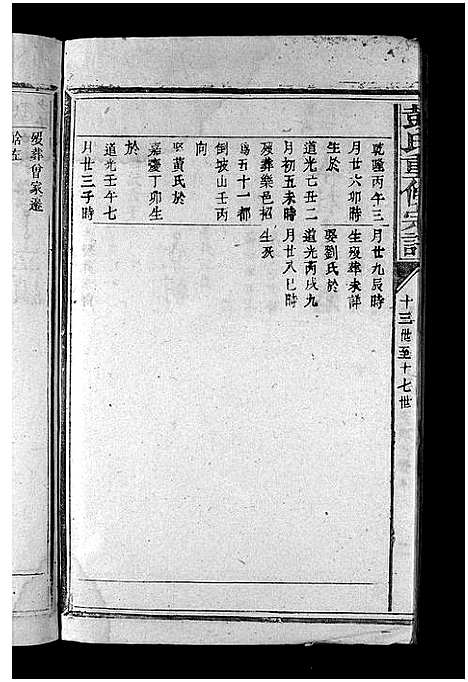 彭氏重修宗譜
十三世至十七世
乾隆丙午三月廿九辰時
月廿六卯時生殁葬未詳
生於娶劉氏於
道光己丑二道光丙戌九
月初五未時月廿八巳時
殁葬樂邑招生殁
鳥五十一都
倒坡山壬丙
向
娶黄氏於
嘉慶丁卯生
於
道光壬午七
月廿三子時
殁葬曾家邊
左